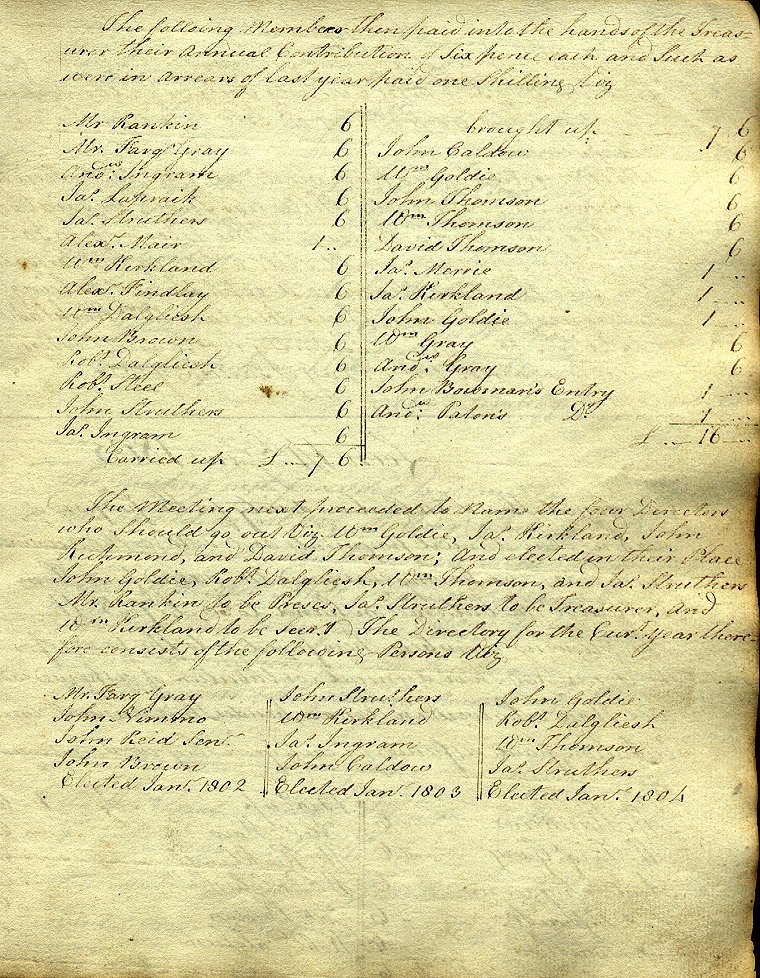 The following Members then paid into the hands of the Treas-
urer their Annual Contribution of Six pence each and Such as
were in arrears of last year paid one Shilling Viz
Mr Rankin 6
Mr. Farqr Gray 6
Andw. Ingram 6
Jas. Lapraik 6
Jas. Struthers 6
Alexr. Mair 1 ..
Wm Kirkland 6
Alexr. Findlay 6
Wm Dalgliesh 6
John Brown 6
Robt. Dalgliesh 6
Robt. Steel 6
John Struthers 6
Jas. Ingram 6
Carried up £ .... 7 6
brought up 7 6
John Caldow 6
Wm Goldie 6
John Thomson 6
Wm Thomson 6
David Thomson 6
Jas. Morrie 1 ..
Jas. Kirkland 1 ..
John Goldie 1 ..
Wm Gray 6
Andw. Gray 6
John Bowman's Entry 1 ...
Andw. Paton's Do 1 ...
£ .... 16 ...
The Meeting next proceeded to name the four Directors
who Should go out Viz. Wm Goldie, Jas. Kirkland, John
Richmond, and David Thomson; And elected in their Place
John Goldie, Robt. Dalgliesh, Wm Thomson, and Jas. Struthers
Mr. Rankin to be Preses, Jas. Struthers to be Treasurer, and
Wm Kirkland to be secry. The Directory for the Curt. year there-
fore consists of the following Persons Viz
Mr. Farqr Gray
John Nimmo
John Reid Senr.
John Brown
Elected Jany. 1802
John Struthers
Wm Kirkland
Jas. Ingram
John Caldow
Elected Jany. 1803
John Goldie
Robt. Dalgliesh
Wm Thomson
Jas. Struthers
Elected Jany. 1804